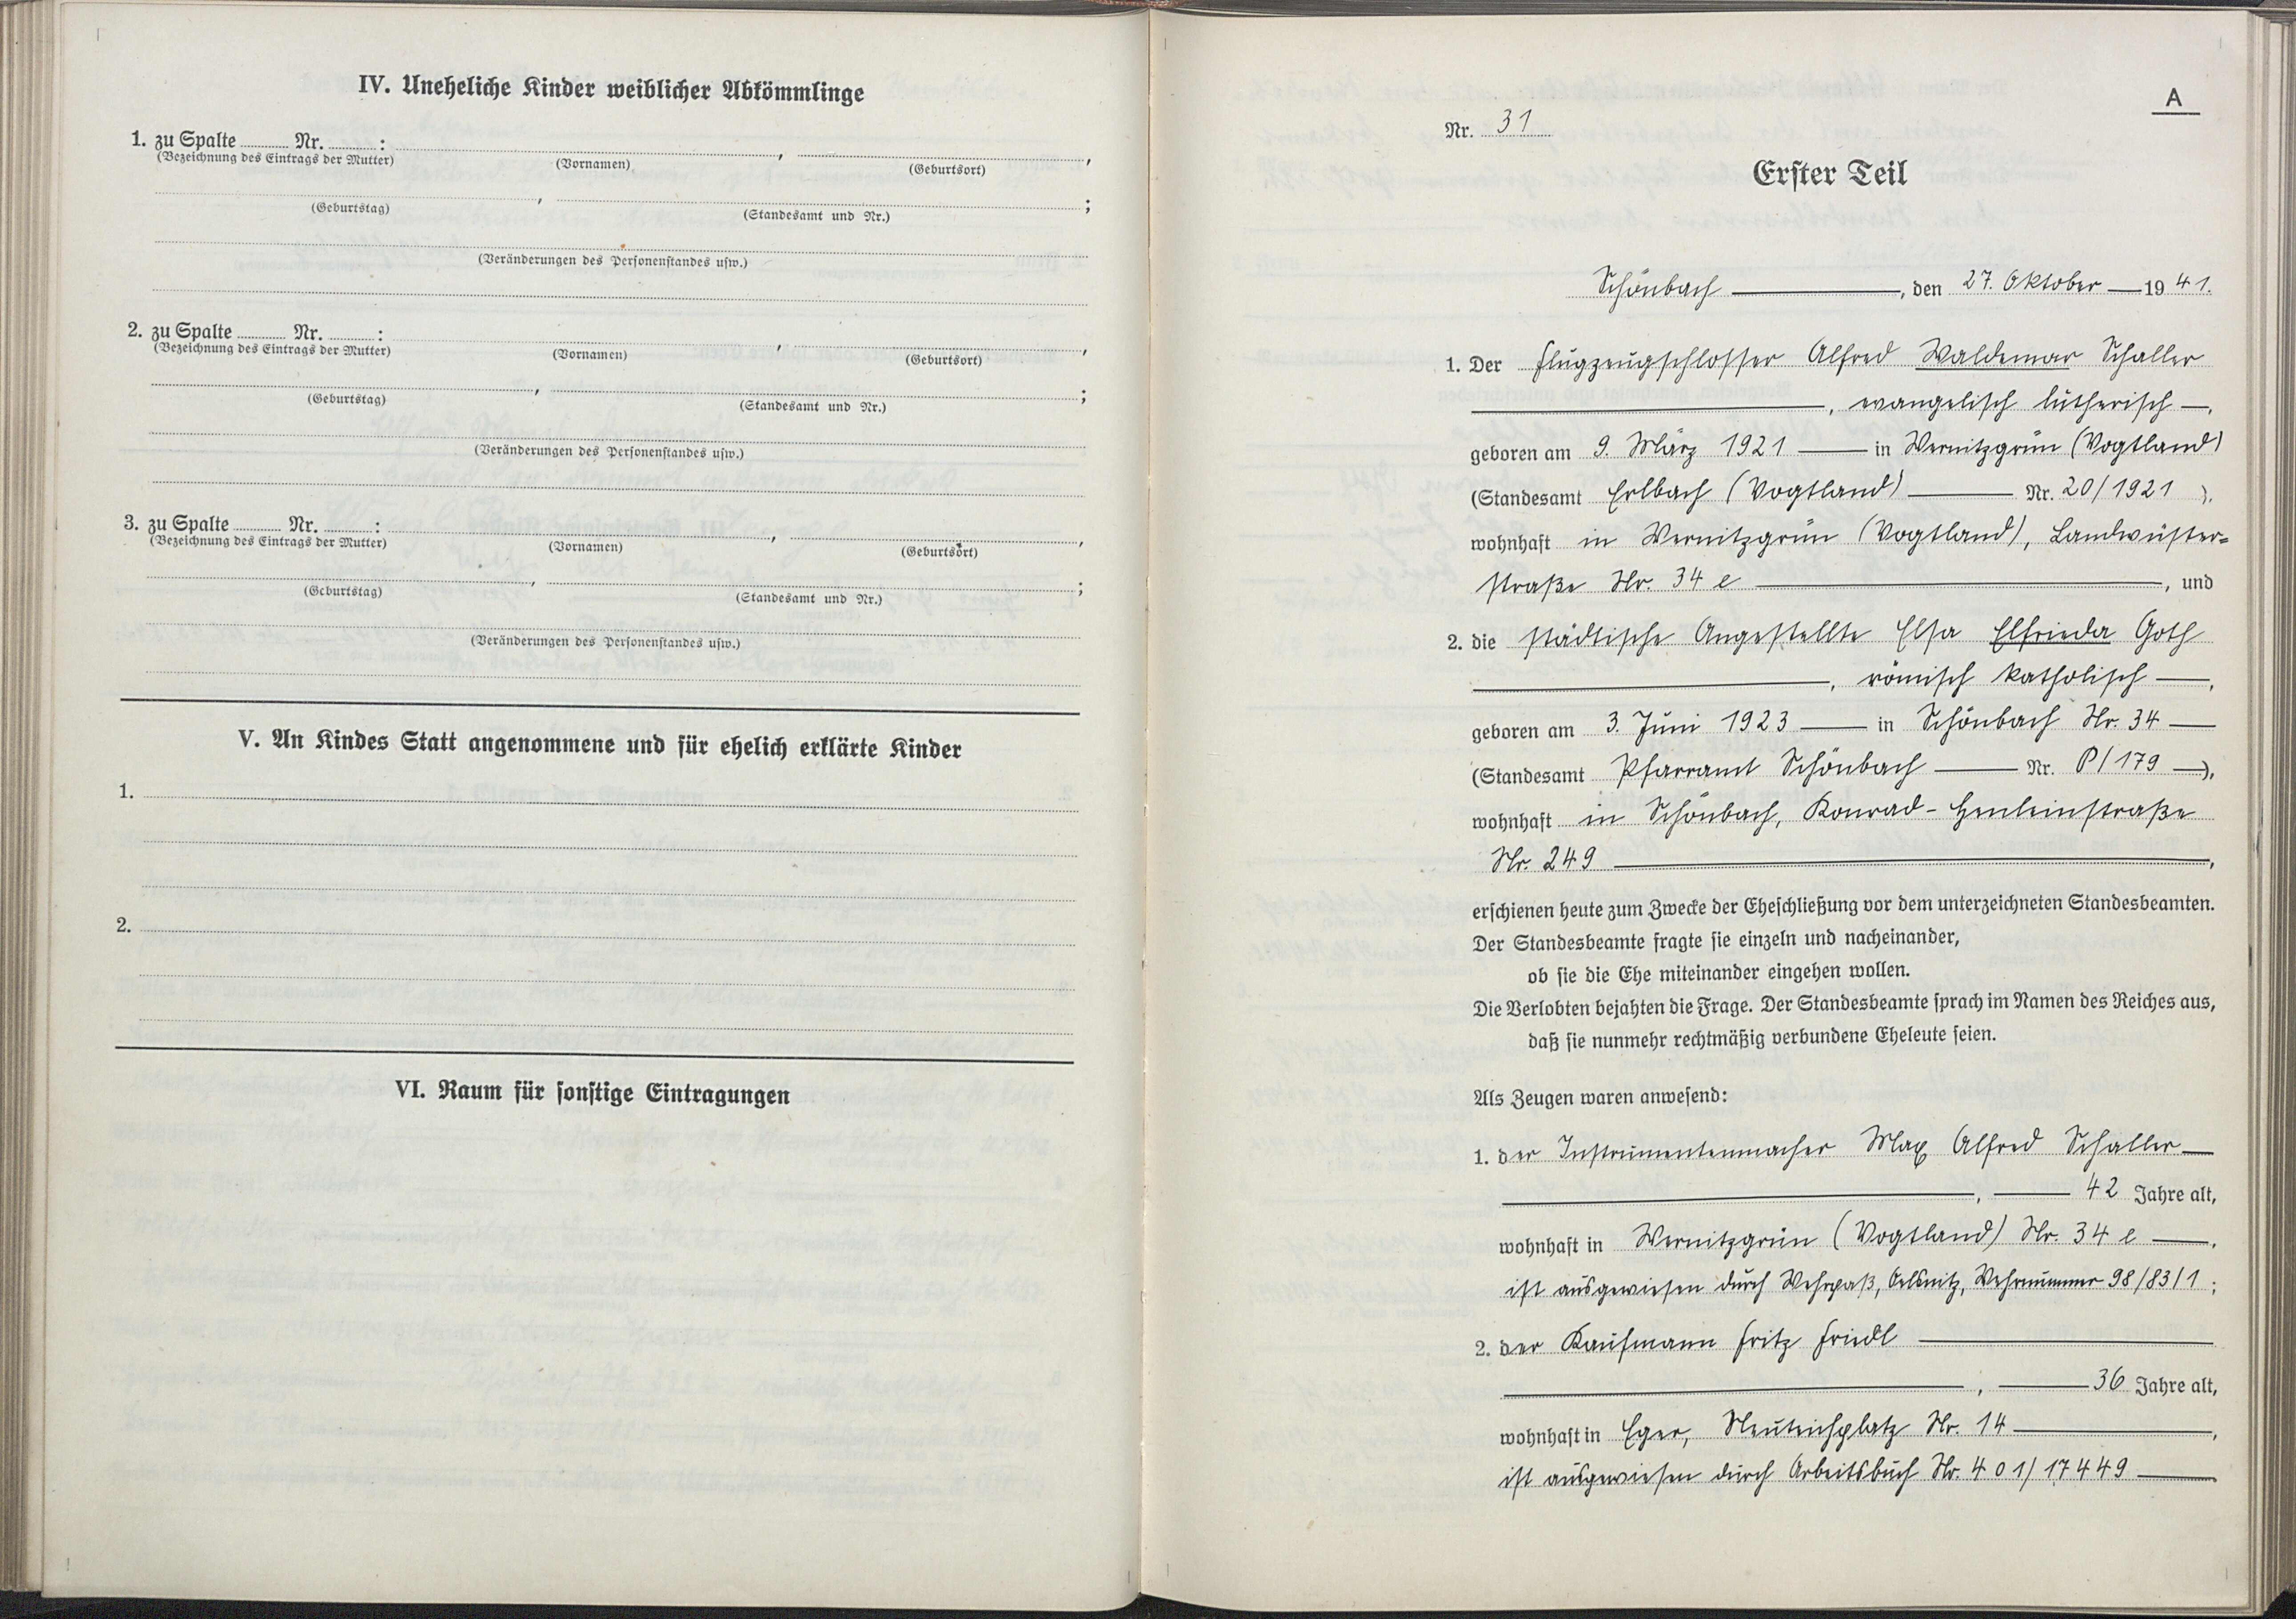 IV. Uneheliche Kinder weiblicher Abkömmlinge
1. zu Spalte ........ Nr. ........ : ........ , ........ ,
(Bezeichnung des Eintrags der Mutter) (Vornamen) (Geburtsort)
........ , ........ ;
(Geburtstag) (Standesamt und Nr.)
(Veränderungen des Personenstandes usw.)
2. zu Spalte ........ Nr. ........ : ........ , ........ ,
(Bezeichnung des Eintrags der Mutter) (Vornamen) (Geburtsort)
........ , ........ ;
(Geburtstag) (Standesamt und Nr.)
(Veränderungen des Personenstandes usw.)
3. zu Spalte ........ Nr. ........ : ........ , ........ ,
(Bezeichnung des Eintrags der Mutter) (Vornamen) (Geburtsort)
........ , ........ ;
(Geburtstag) (Standesamt und Nr.)
(Veränderungen des Personenstandes usw.)
V. An Kindes Statt angenommene und für ehelich erklärte Kinder
1.
2.
VI. Raum für sonstige Eintragungen
A
Nr. 31
Erster Teil
Schönbach ——, den 27. Oktober — 1941.
1. Der Flugzeugschlosser Alfred Waldemar Schaller
——, evangelisch lutherisch —,
geboren am 9. März 1921 — in Wernitzgrün (Vogtland)
(Standesamt Erlbach (Vogtland) — Nr. 20/1921 ),
wohnhaft in Wernitzgrün (Vogtland), Landwüster=
straße Nr. 34 e ——, und
2. die städtische Angestellte Elsa Elfrieda Goth
——, römisch katholisch —,
geboren am 3. Juni 1923 — in Schönbach Nr. 34 —
(Standesamt Pfarramt Schönbach — Nr. P/179 —),
wohnhaft in Schönbach, Konrad-Henleinstraße
Nr. 249 ——,
erschienen heute zum Zwecke der Eheschließung vor dem unterzeichneten Standesbeamten.
Der Standesbeamte fragte sie einzeln und nacheinander,
ob sie die Ehe miteinander eingehen wollen.
Die Verlobten bejahten die Frage. Der Standesbeamte sprach im Namen des Reiches aus,
daß sie nunmehr rechtmäßig verbundene Eheleute seien.
Als Zeugen waren anwesend:
1. der Instrumentenmacher Max Alfred Schaller —
——, — 42 Jahre alt,
wohnhaft in Wernitzgrün (Vogtland) Nr. 34 e —,
ist ausgewiesen durch Wehrpaß, Oelsnitz, Wehrnummer 98/83/1 ;
2. der Kaufmann Fritz Friedl ——
——, — 36 Jahre alt,
wohnhaft in Eger, Neuteichplatz Nr. 14 ——,
ist ausgewiesen durch Arbeitsbuch Nr. 401/17449 —